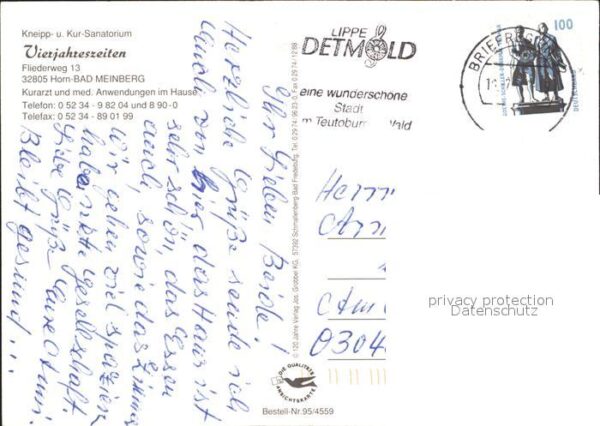 Kneipp- u. Kur-Sanatorium
Vierjahreszeiten
Fliederweg 13
32805 Horn-BAD MEINBERG
Kurarzt und med. Anwendungen im Hause
Telefon: 0 52 34 - 9 82 04 und 8 90-0
Telefax: 0 52 34 - 89 01 99
Ihr lieben Beide!
Herzliche Grüße sende ich
Euch von hier das Haus ist
sehr schön, das Essen
auch, sowie das Zimmer
Wir gehen viel spazieren
haben nette Gesellschaft.
Liebe Grüße Eure
Bleibt gesund...
© 120 Jahre Verlag Jos. Grobbel KG, 57392 Schmallenberg-Bad Fredeburg, Tel. 0 29 74 - 96 23-0, Fax 0 29 74-12 89
LIPPE
DETMOLD
eine wunderschöne
Stadt
m Teutoburg Wald
BRIEFRE
100
DEUTSCHE
Herrn
0304
privacy protection
Datenschutz
DIE QUALITÄTS
ANSICHTSKARTE
Bestell-Nr. 95/4559